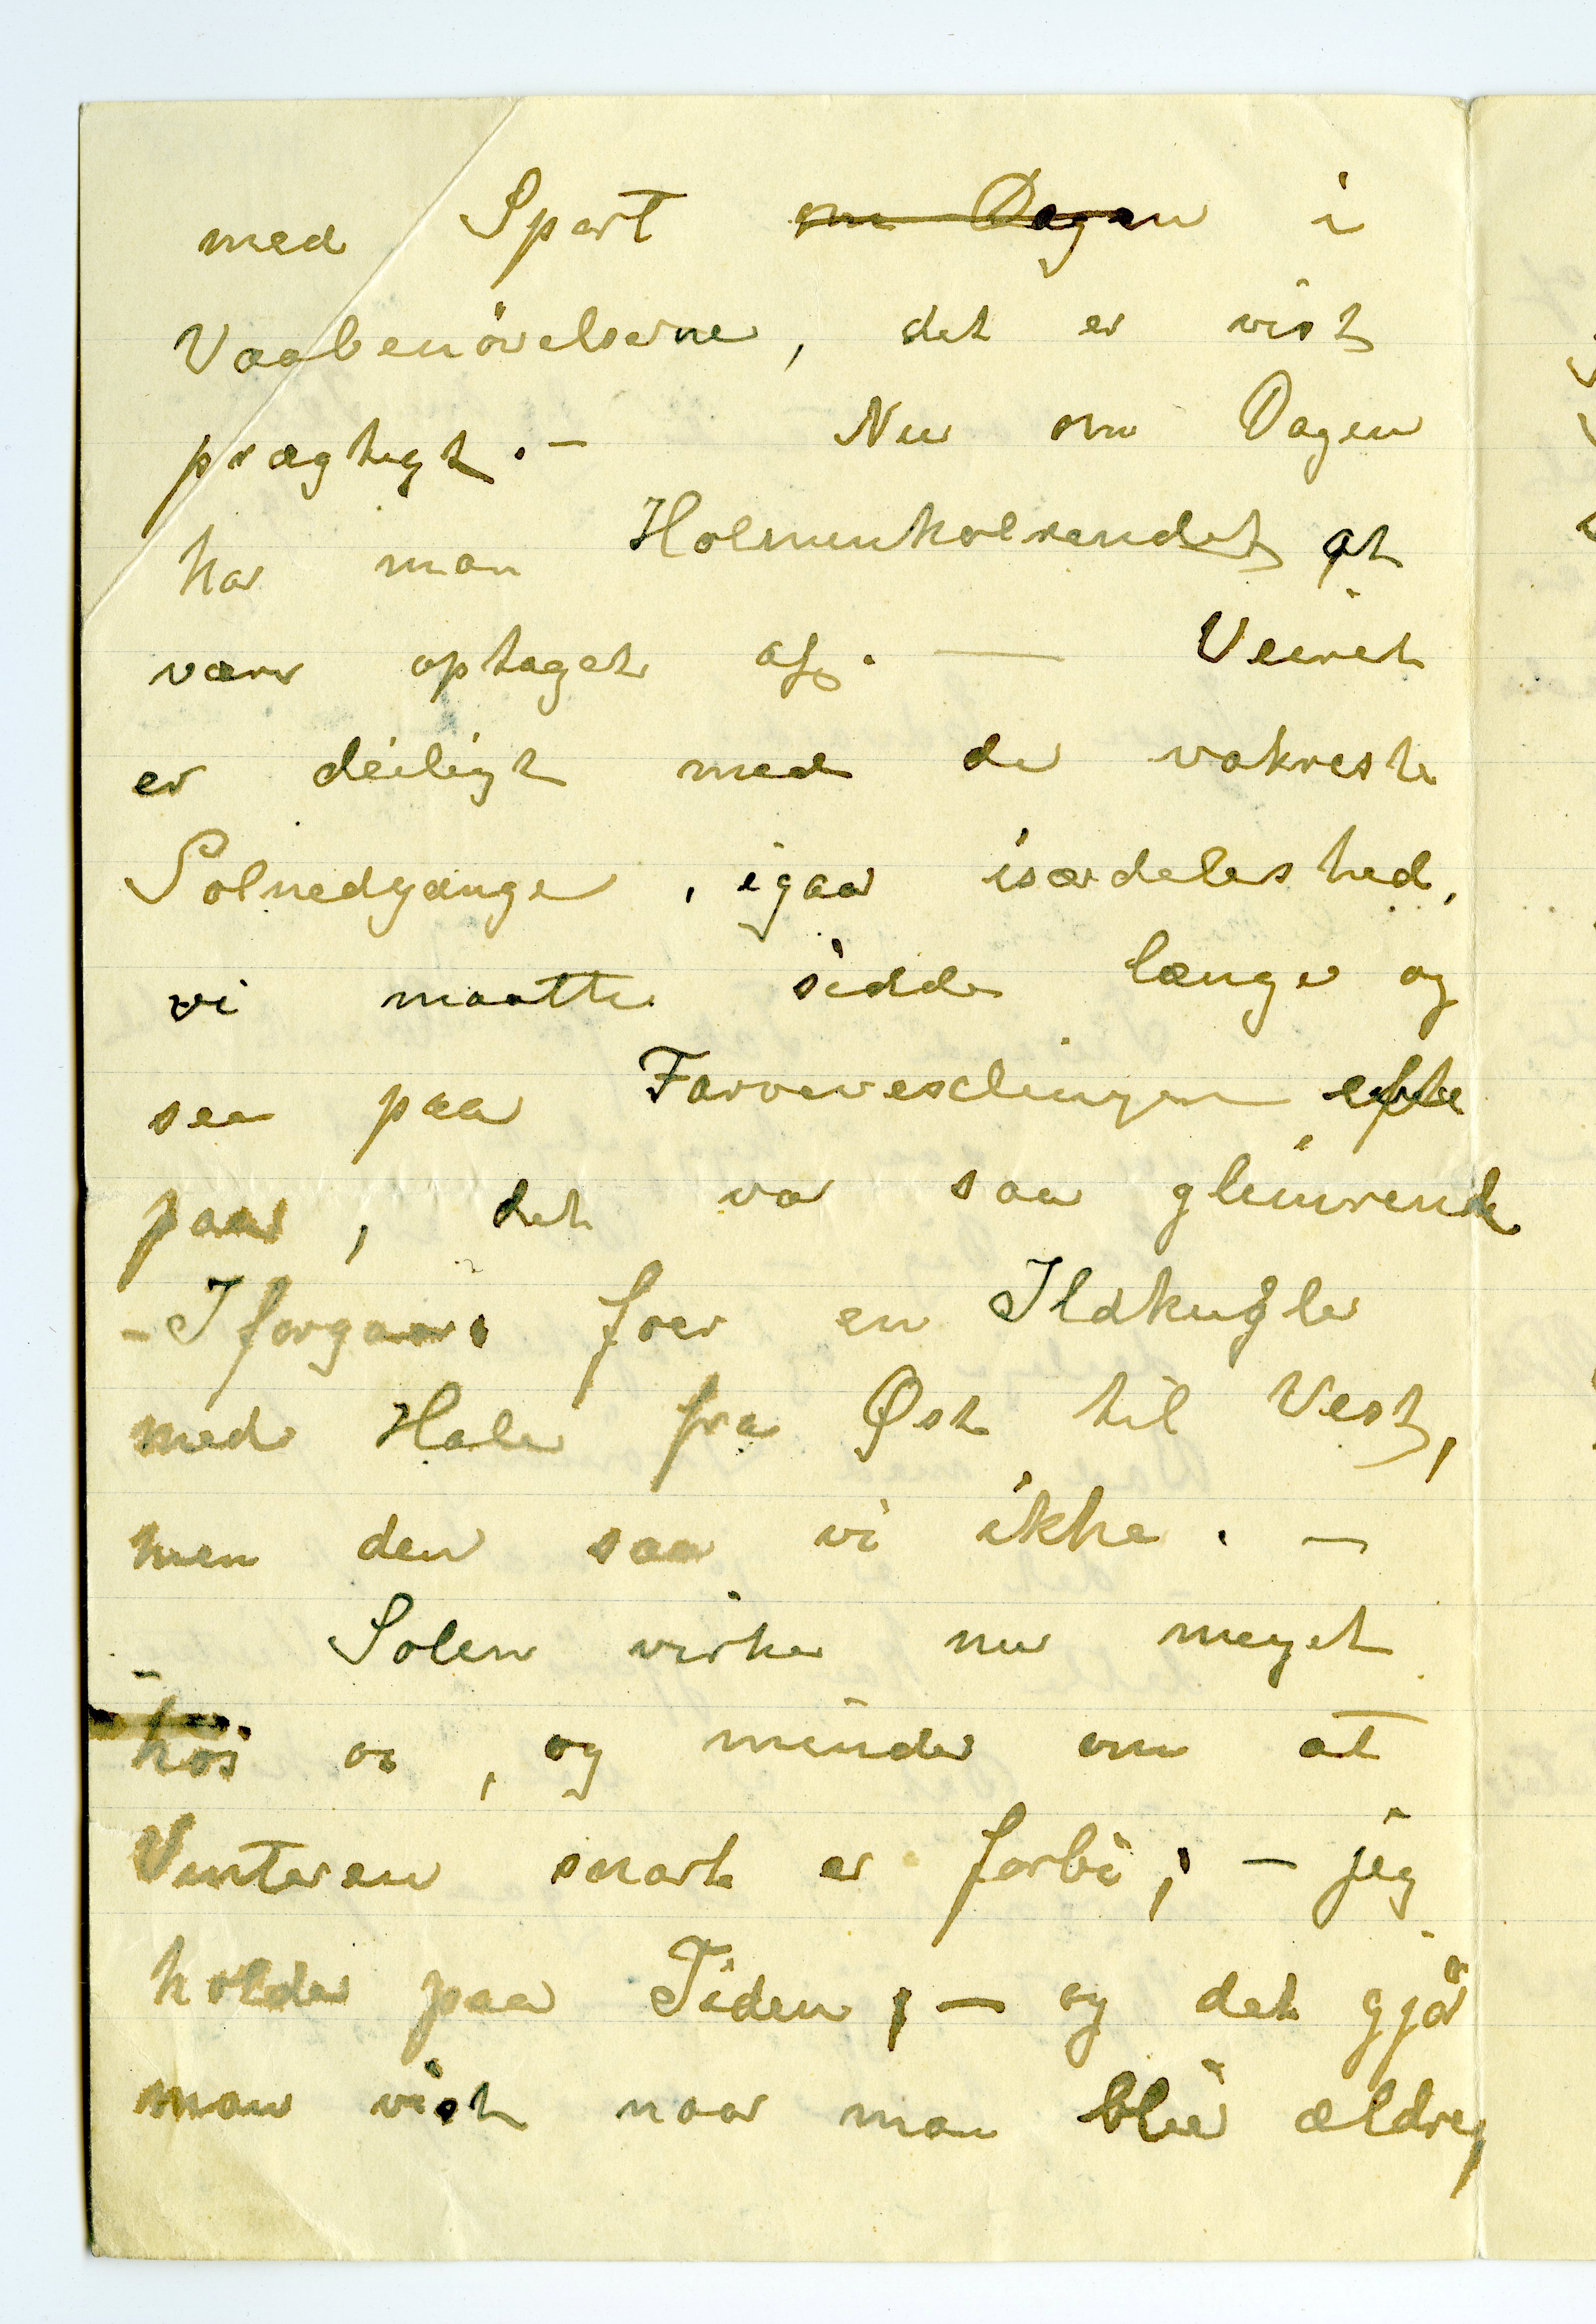 med Sport om Dagen i
Vaabenövelserne, det er vist
prægtigt. – Nu om Dagen
har man Holmenkolrendet at
være optaget af. — Veiret
er deiligt med de vakreste
Solnedgange, igaar isærdeleshed,
vi maatte sidde længe og
see paa Farvevexlingen efter
paa, det var saa glimrende
– Iforgaars foer en Ildkugle
med Hale fra Øst til Vest,
men den saa vi ikke. –
– Solen virker nu meget
hos os, og minder om at
Vinteren snart er forbi; – jeg
holder paa Tiden, – og det gjör
man vist naar man blir ældre,